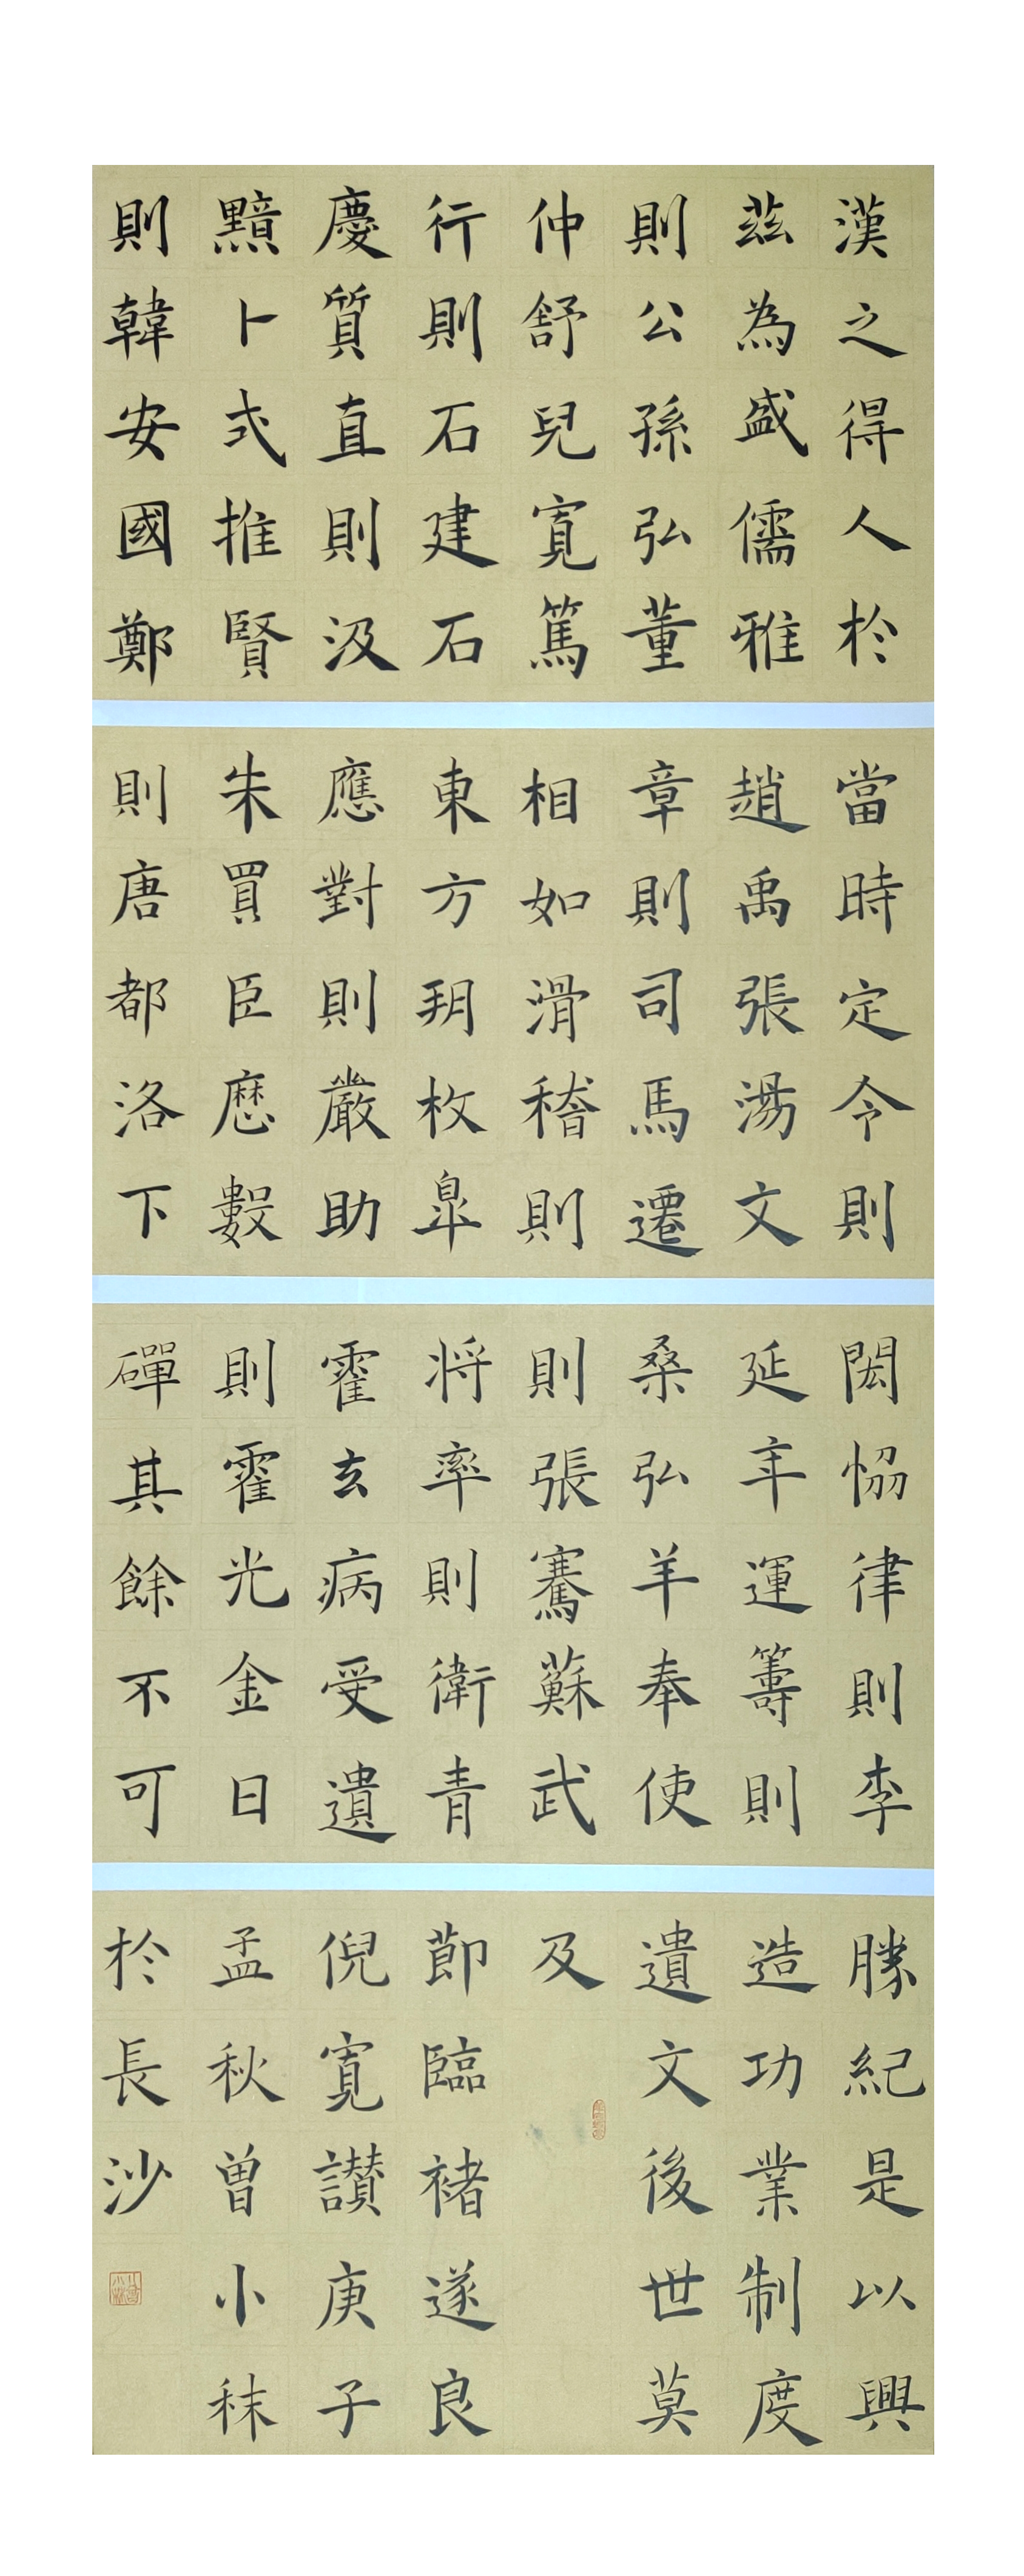 漢之得人於
茲為盛儒雅
則公孫弘董
仲舒兒寬篤
行則石建石
慶質直則汲
黯卜式推賢
則韓安國鄭
當時定令則
趙禹張湯文
章則司馬遷
相如滑稽則
東方朔枚皐
應對則嚴助
朱買臣厯數
則唐都洛下
閎恊律則李
延年運籌則
桑弘羊奉使
則張騫蘇武
将率則衛青
霍去病受遺
則霍光金日
磾其餘不可
勝紀是以興
造功業制度
遺文後世莫
及
節臨褚遂良
倪寬讃庚子
孟秋曾小秣
於長沙